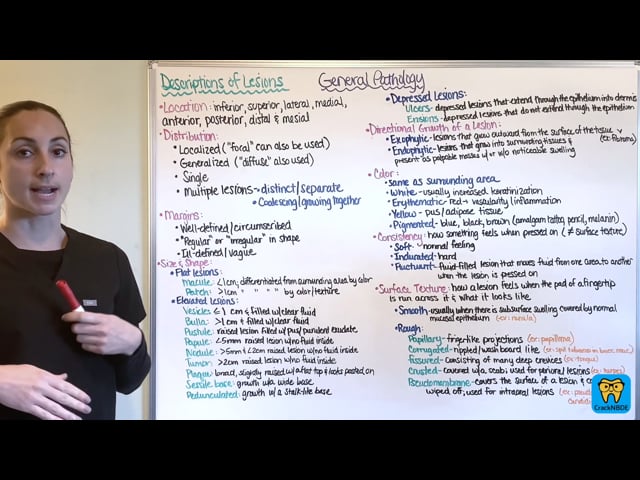 Descriptions of Lesions
General Pathology
• Location: inferior, superior, lateral, medial,
anterior, posterior, distal & mesial
• Distribution:
• Localized ("focal" can also be used)
• Generalized ("diffuse" also used)
• Single
• Multiple lesions → distinct/separate
Coalescing/growing together
• Margins:
• Well-defined/circumscribed
• "Regular" or "irregular" in shape
• Ill-defined/vague
• Size & Shape:
• Flat lesions:
Macule: <1cm; differentiated from surrounding areas by color
Patch: >1cm " " " " by color/texture
• Elevated lesions:
Vesicle: ≤1 cm & filled w/clear fluid
Bulla: >1cm & filled w/clear fluid
Pustule: raised lesion filled w/pus/purulent exudate
Papule: <5mm raised lesion w/no fluid inside
Nodule: >5mm & <2cm raised lesion w/no fluid inside
Tumor: >2cm raised lesion w/no fluid inside
Plaque: broad, slightly raised w/a flat top & looks pasted on
Sessile base: growth w/a wide base
Pedunculated: growth w/a stalk-like base
• Depressed Lesions:
Ulcers - depressed lesions that extend through the epithelium into dermis
Erosions - depressed lesions that do not extend through the epithelium
• Directional Growth of a Lesion:
• Exophytic - lesions that grow outward from the surface of the tissue
(ex: fibroma)
• Endophytic - lesions that grow into surrounding tissues &
present as palpable masses w/ or w/o noticeable swelling
• Color:
• Same as surrounding area
• White - usually increased keratinization
• Erythematic - red → vascularity/inflammation
• Yellow - pus/adipose tissue
• Pigmented - blue, black, brown (amalgam tattoo, pencil, melanin)
• Consistency: how something feels when pressed on (≠ surface texture)
• Soft - normal feeling
• Indurated - hard
• Fluctuant - fluid-filled lesion that moves fluid from one area to another
when the lesion is pressed on
• Surface Texture: how a lesion feels when the pad of a fingertip
is run across it & what it looks like
• Smooth - usually when there is subsurface swelling covered by normal
mucosal epithelium (ex: ranula)
• Rough:
Papillary - finger-like projections (ex: papilloma)
Corrugated - rippled/wash board like (ex: spit tobacco in bucc. muc.)
Fissured - consisting of many deep crevices (ex: tongue)
Crusted - covered w/a scab; used for perioral lesions (ex: herpes)
Pseudomembrane - covers the surface of a lesion &
wiped off; used for intraoral lesions
CrackNBDE